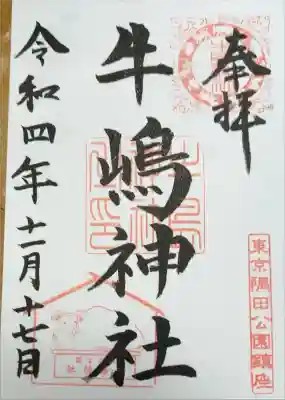 奉拝
牛嶋神社
令和四年十一月十七日
東京隅田公園鎮座